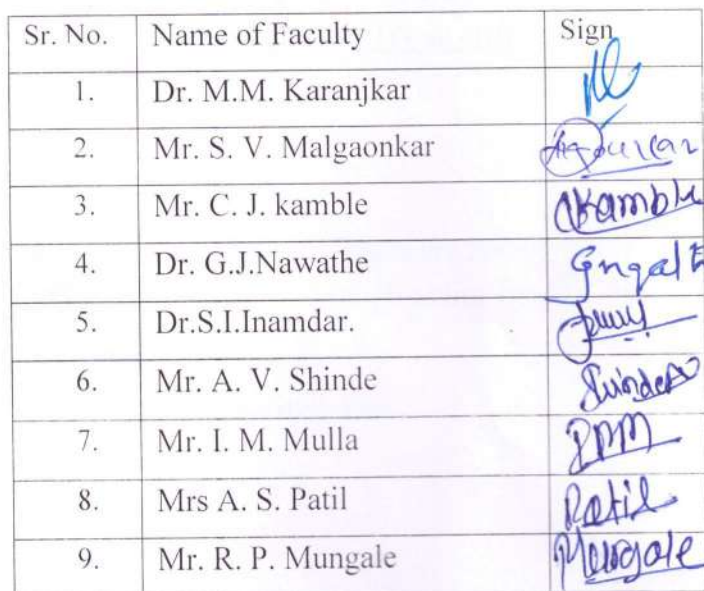 Sr. No. Name of Faculty Sign
1. Dr. M.M. Karanjkar
2. Mr. S. V. Malgaonkar
3. Mr. C. J. kamble Kamble
4. Dr. G.J.Nawathe
5. Dr.S.I.Inamdar.
6. Mr. A. V. Shinde Shinde
7. Mr. I. M. Mulla
8. Mrs A. S. Patil Patil
9. Mr. R. P. Mungale Mungale